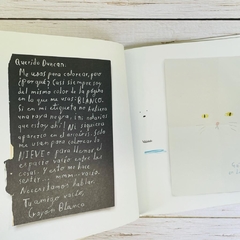 Querido Duncan:
Me usas para colorear, pero
¿Por qué? Casi siempre soy
del mismo color de la página
en la que me usas: BLANCO.
Si en mi etiqueta no hubiera
una raya negra, ¡ni sabrías
que estoy ahí! Ni siquiera
aparezco en el arcoíris. Sólo
me usas para colorear la
NIEVE o para llenar el
espacio vacío entre las
cosas. Y esto me hace
sentir... mmm... vacío.
Necesitamos hablar.
Tu amigo vacío,
Crayón Blanco